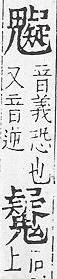 音義恐也
又音逆
同
上